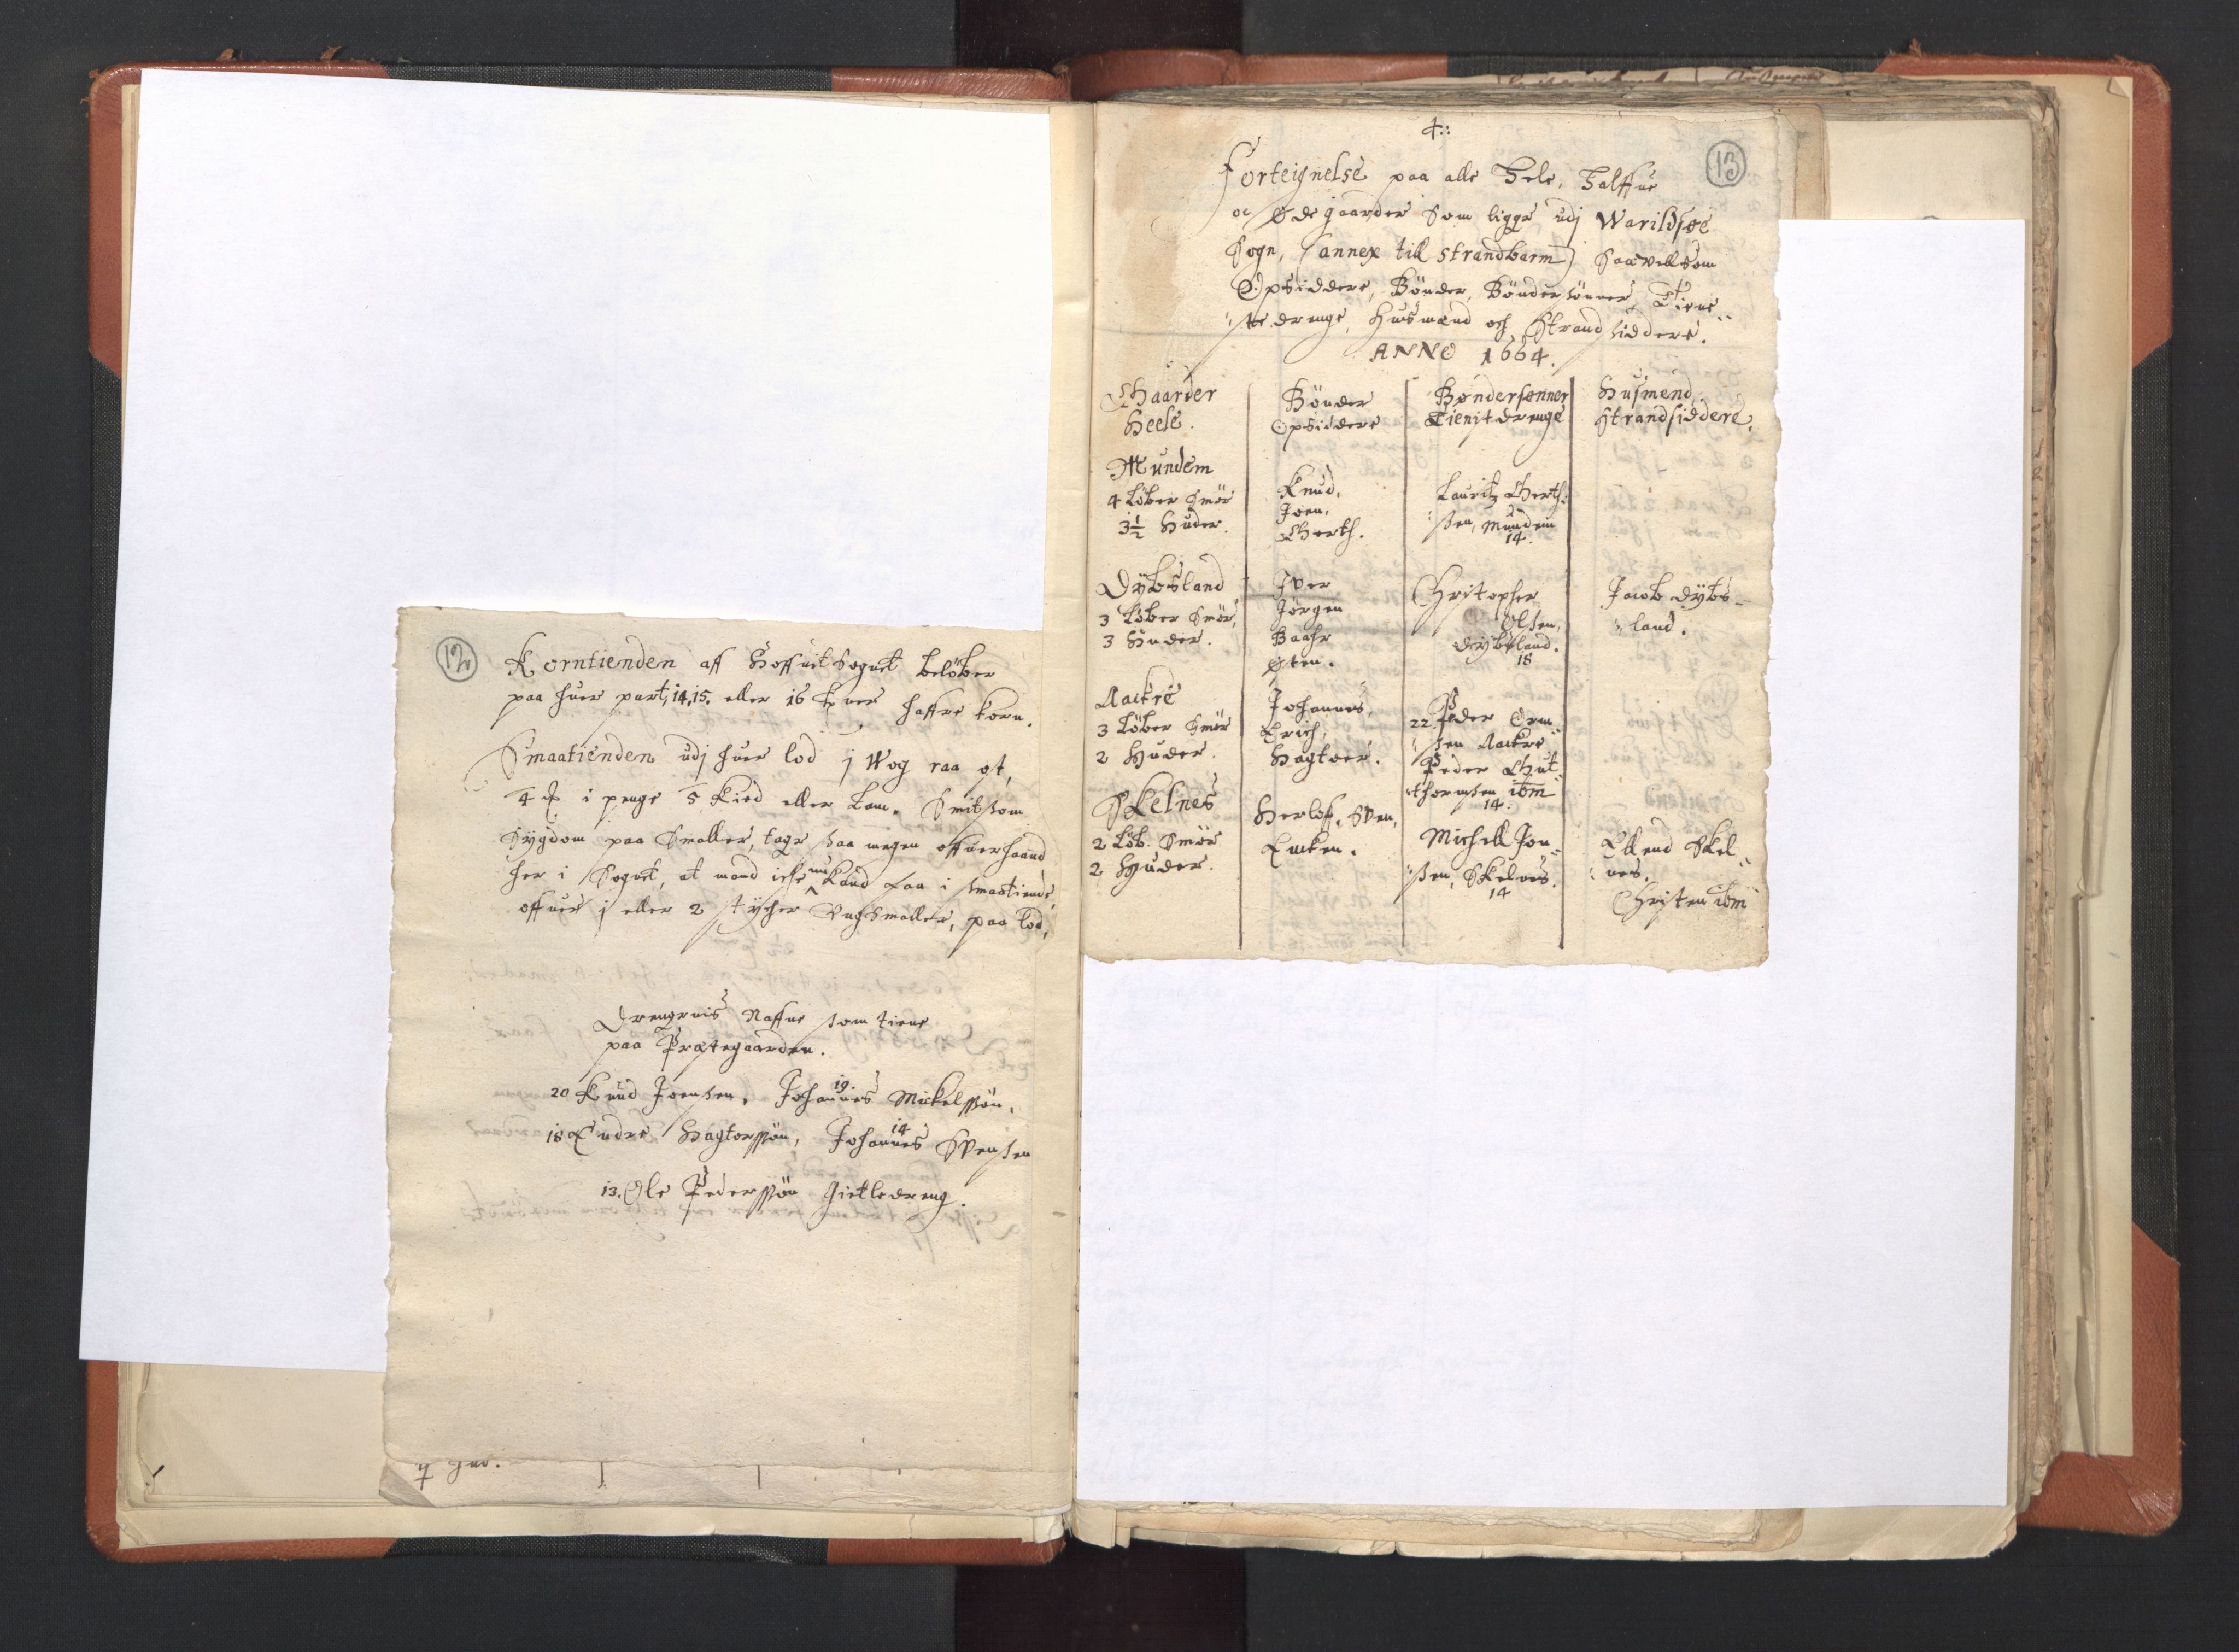 12
Korntienden aff Hoffuit Sognet beløber
paa huer part, 14, 15. eller 16 haffre korn.
Smaatienden udj huer lod j Wog raa ost,
4 i penge 5 Kied eller Lam. Smitsom
Sygdom paa Smaller, tager saa megen offuerhaand
her i Sognet, at mand icke nu Kand faa i smaatiende,
offuer j eller 2 stycher Ungsmaller, paa lod,
Drengenis Naffne som tiene
paa Prestegaarden.
20 Knud Joensen, 19. Johannes Mickelssøn,
18 Endre Hagtorssøn, 14 Johannes Svensen
13. Ole Pederssøn Gietledreng.
4::
13
Forteignelse paa alle Hele, Halffue
oc Øde gaarder Som ligge udj Warildsøe
Sogn, (annex till Strandbarm) Saavellsom
Opsiddere, Bönder, Böndersönner, Tiene
ste drenge, Husmænd och Strandsiddere.
ANNO 1664.
Ghaarder Heele.
Bönder Opsiddere
Bøndersønner Tienistdrenge
Husmend. Strandsiddere.
Mundem
4 Löber Smör
3½ Huder.
Knud,
Joen,
Gherth.
Lauritz Gherth:
sen, Mundem
14.
Dybsland
3 Löber Smör,
3 Huder.
Iver
Jörgen
Baahr
Østen.
Christopher
Olsen,
Dybsland.
18
Jacob Dybs-
land.
Aackre
3 Löber Smör
2 Huder.
Johannes,
Erich,
Hagtoer.
22 Peder Orm
sen Aackre
Peder Gut
thormsen ibm
14.
Skelnes
2 Löb. Smör
2 Huder.
Herlof, Sven,
Michell Jon-
sen, Skelnes.
14
Ellend Skel
nes.
Christen ibm